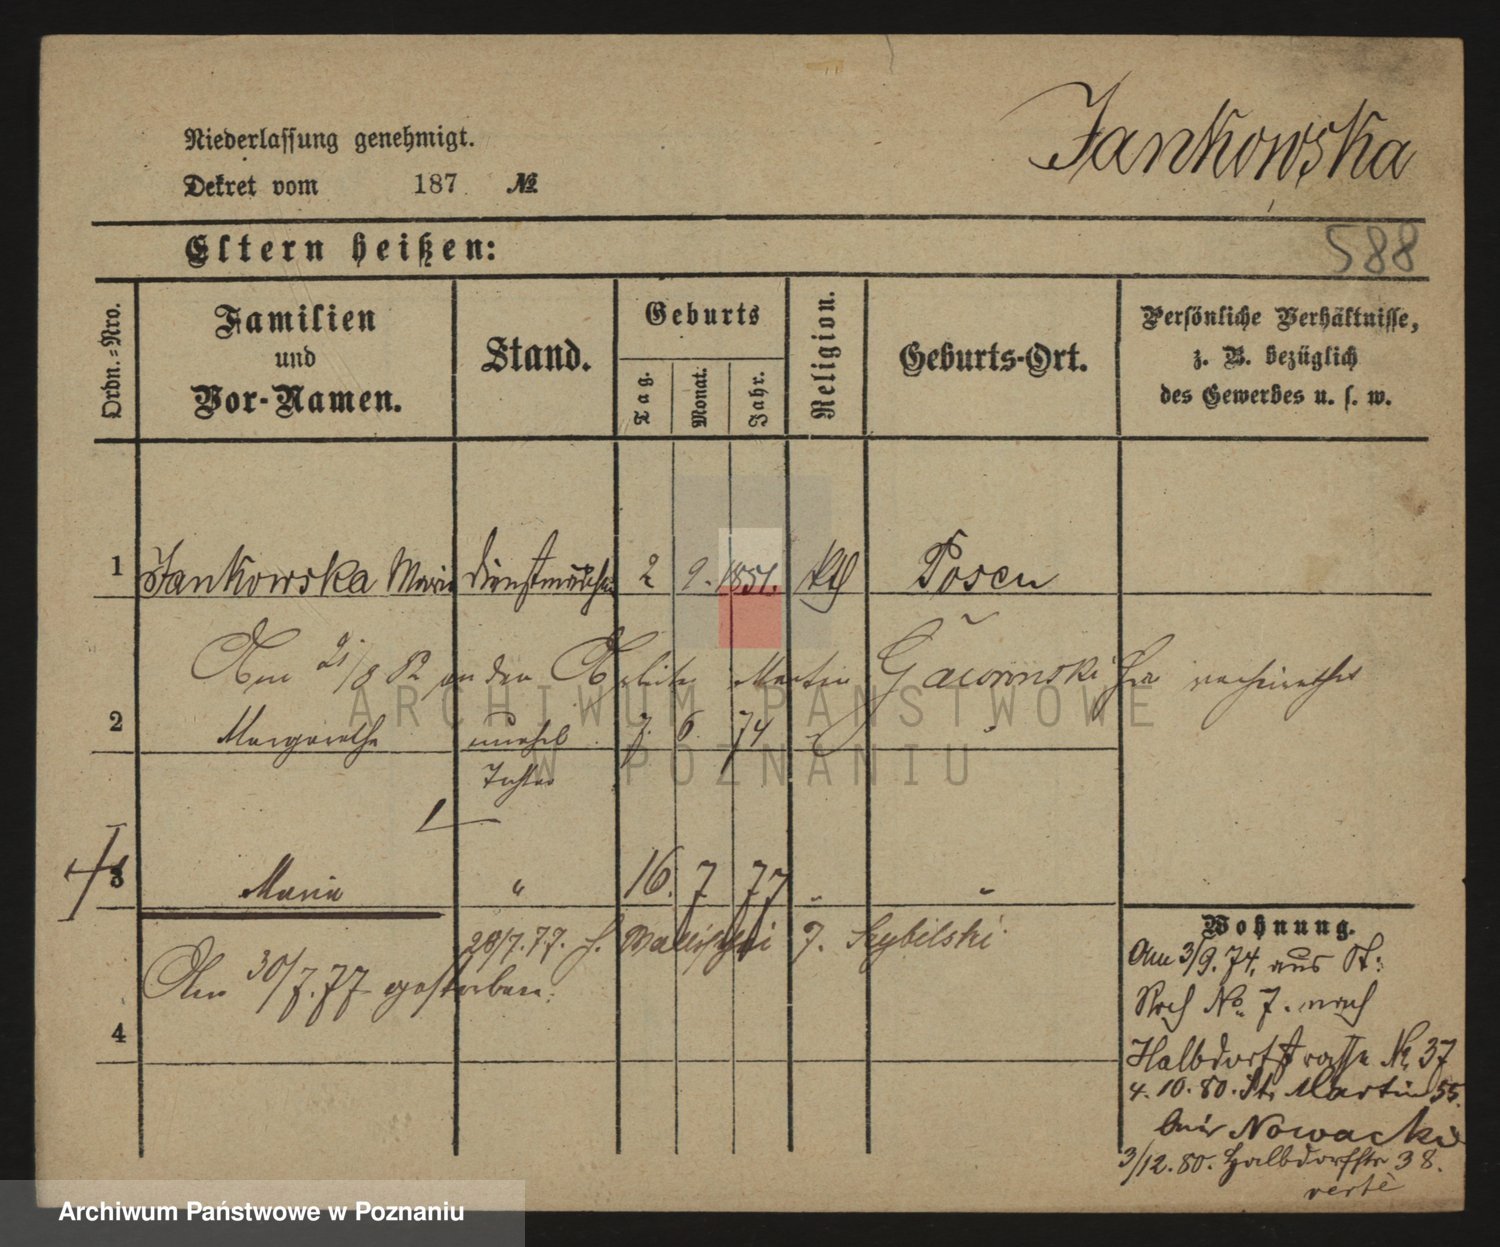 Jankowska
Niederlassung genehmigt.
Dekret vom 187 №
588
Eltern heißen:
Ordn.-Nro.
Familien
und
Vor-Namen.
Stand.
Geburts
Tag.
Monat.
Jahr.
Religion.
Geburts-Ort.
Persönliche Verhältnisse,
z. B. bezüglich
des Gewerbes u. s. w.
1 Jankowska Marie Dienstmädchen 2 9. 1851. kth Posen
Am 21/8 82 an den Martin verheirathet
2 Margarethe unehel 7. 6 74 "
Tochter
3 Maria " 16. 7 77 " "
28/7.77. J. Szybilski
Am 30/7.77 gestorben.
4
Wohnung.
Am 3/9.74. aus St:
Roch No. 7. nach
Halbdorfstrasse Nr. 37
4.10.80. St. Martin 55.
bei Nowacki
3/12.80. Halbdorfstr 38.
verte
ARCHIWUM PAŃSTWOWE
W POZNANIU
Archiwum Państwowe w Poznaniu